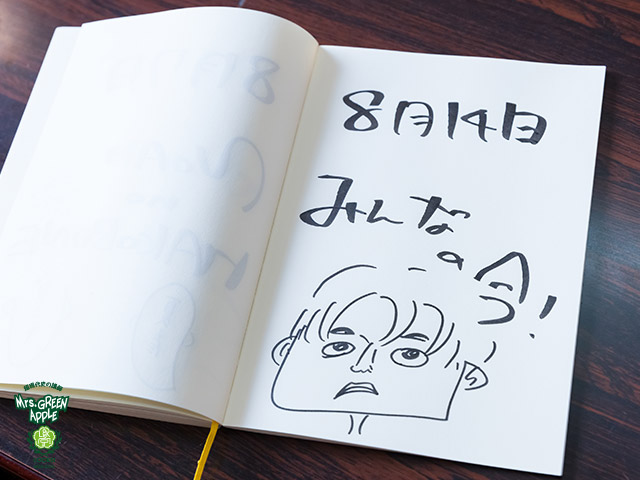 8月14日
みんな
の今!
Mrs. GREEN
APPLE